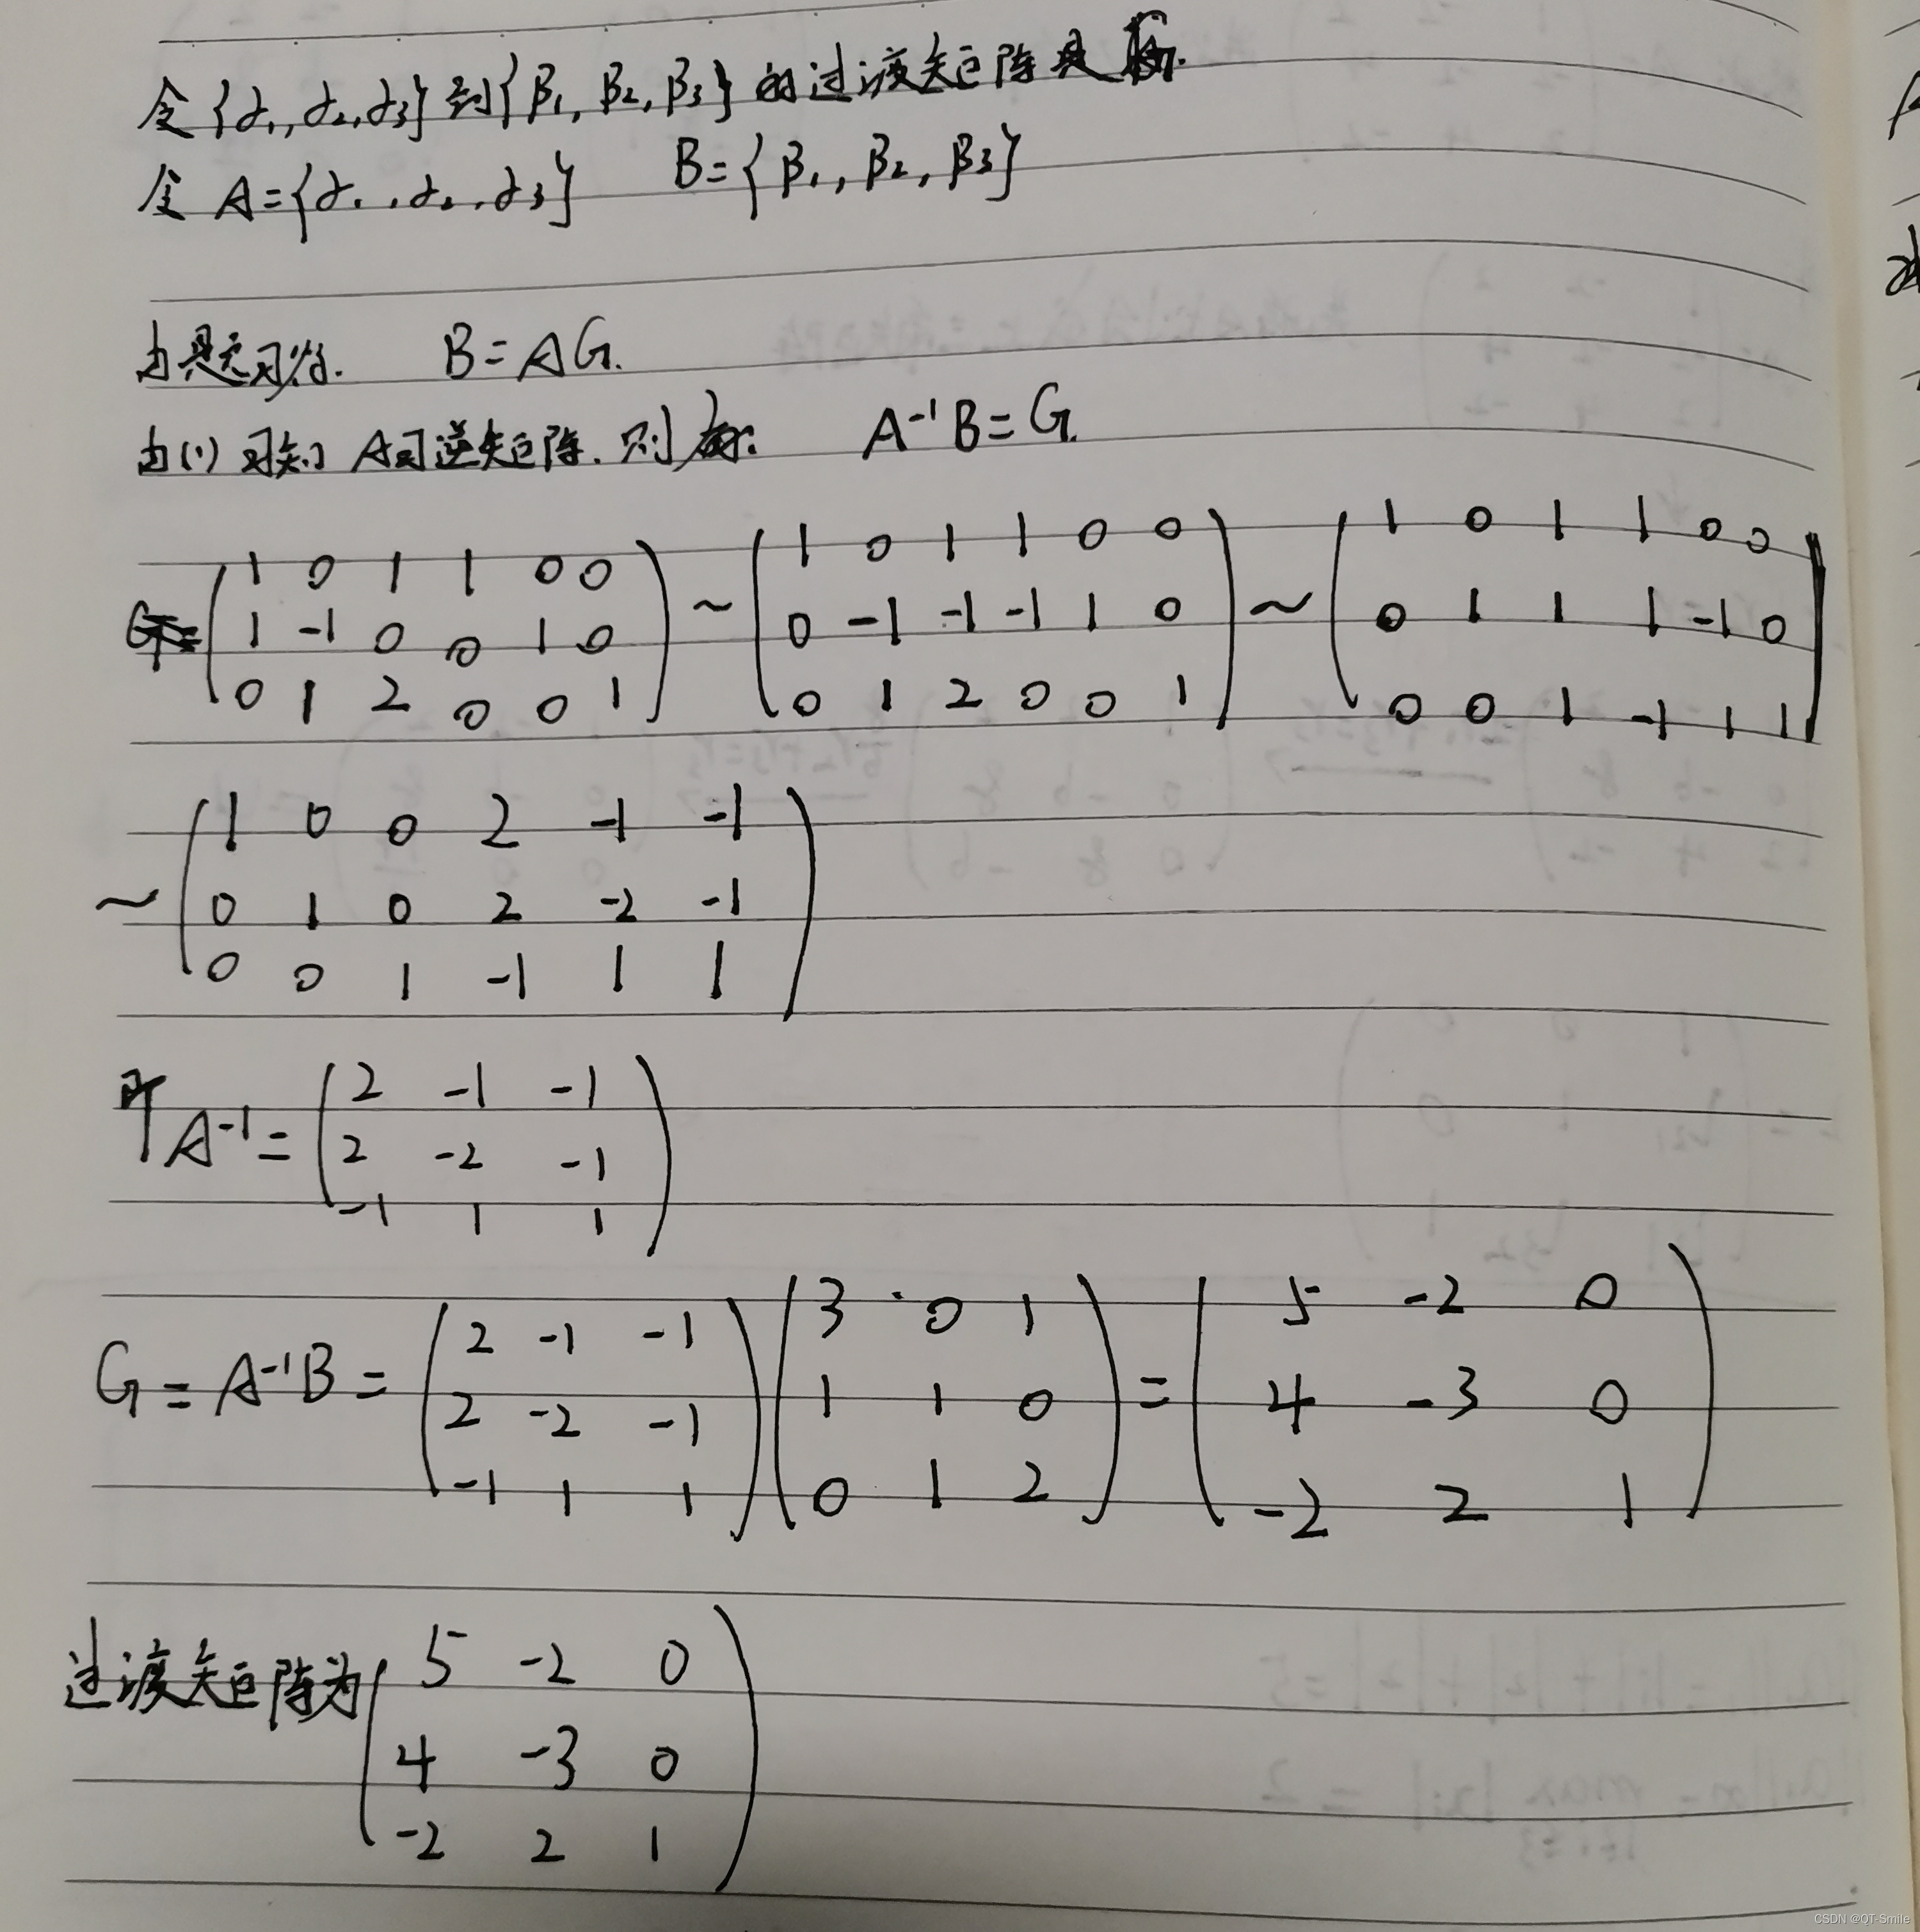 令{α1,α2,α3}到{β1,β2,β3}的过渡矩阵是G.
令 A={α1,α2,α3} B={β1,β2,β3}
由题可得. B=AG.
由(1)可知 A可逆矩阵.则有: A⁻¹B=G.
(1 0 1 1 0 0) ~ (1 0 1 1 0 0) ~ (1 0 1 1 0 0)
(1 -1 0 0 1 0) (0 -1 -1 -1 1 0) (0 1 1 1 -1 0)
(0 1 2 0 0 1) (0 1 2 0 0 1) (0 0 1 -1 1 1)
(1 0 0 2 -1 -1)
~ (0 1 0 2 -2 -1)
(0 0 1 -1 1 1)
(2 -1 -1)
A⁻¹= (2 -2 -1)
(-1 1 1)
(2 -1 -1) (3 0 1) (5 -2 0)
G = A⁻¹B = (2 -2 -1) (1 1 0) = (4 -3 0)
(-1 1 1) (0 1 2) (-2 2 1)
过渡矩阵为 (5 -2 0)
(4 -3 0)
(-2 2 1)
CSDN @QT-Smile